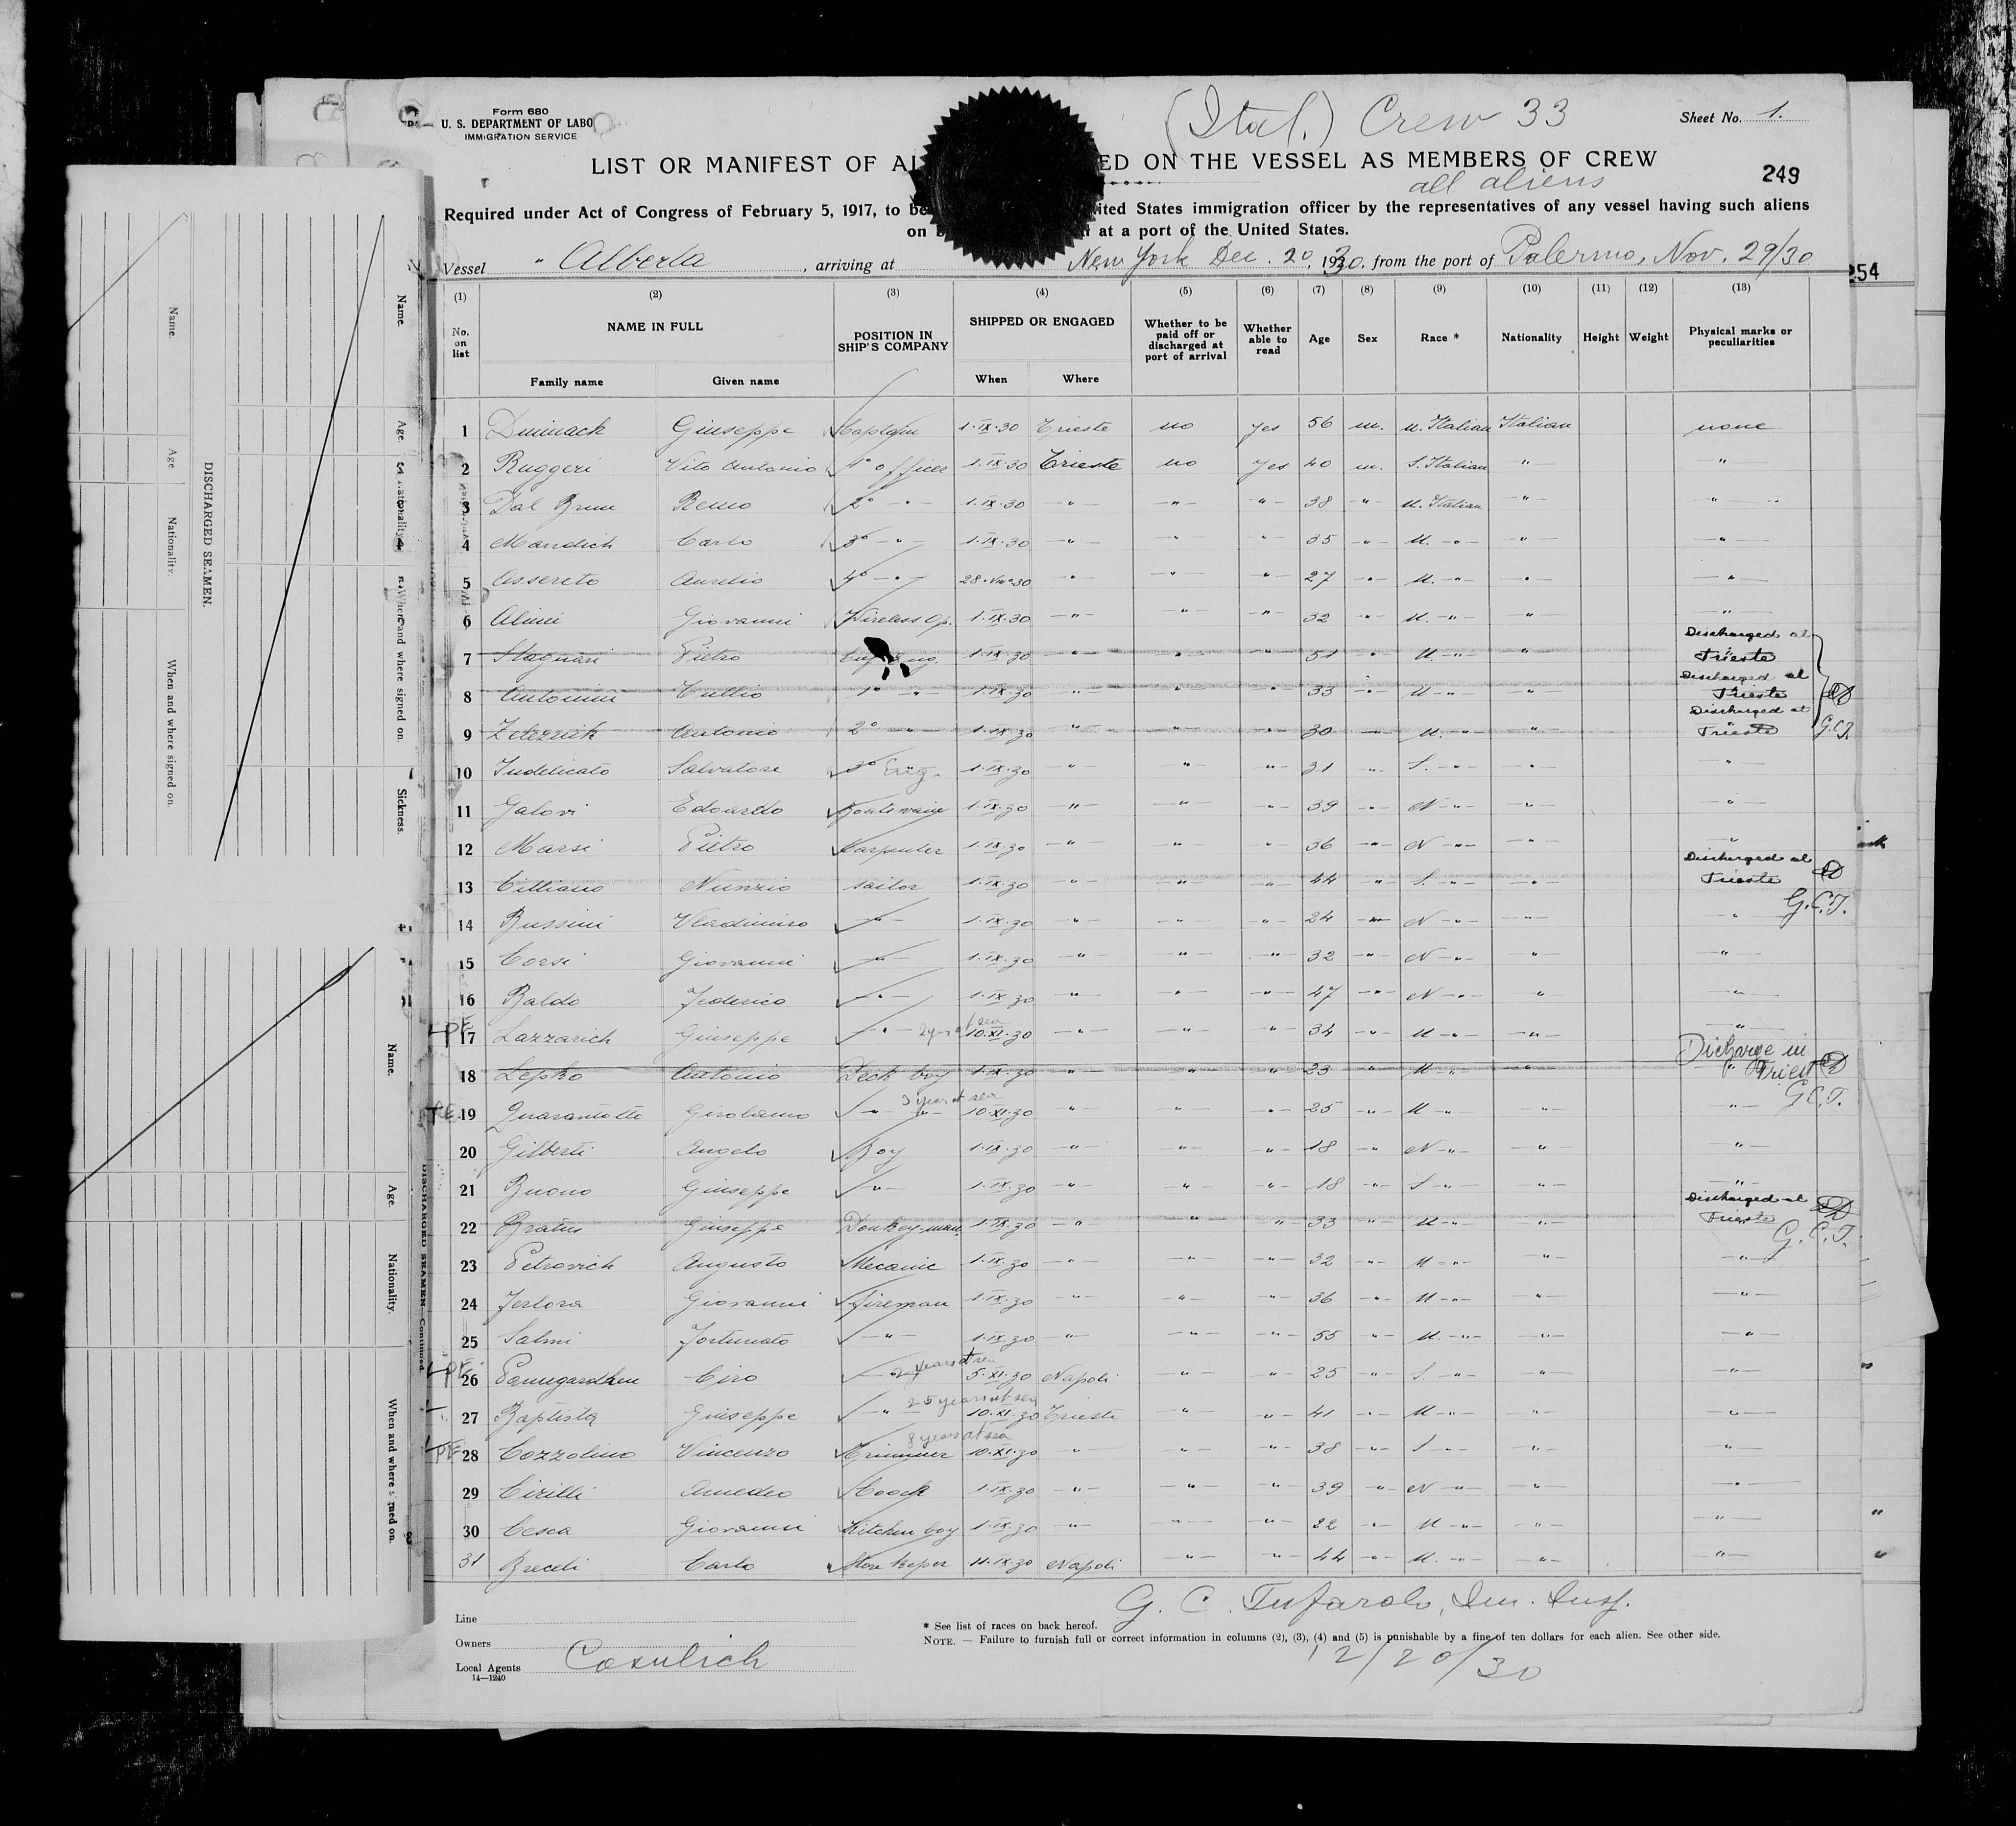 Form 680
U. S. DEPARTMENT OF LABO
IMMIGRATION SERVICE
(Ital.) Crew 33
Sheet No. 1.
LIST OR MANIFEST OF AL ED ON THE VESSEL AS MEMBERS OF CREW
all aliens
249
Required under Act of Congress of February 5, 1917, to be ited States immigration officer by the representatives of any vessel having such aliens
on b at a port of the United States.
Vessel " Alberta , arriving at New York Dec. 20, 1930, from the port of Palermo, Nov. 29/30
254
(1) (2) (3) (4) (5) (6) (7) (8) (9) (10) (11) (12) (13)
No. on list NAME IN FULL POSITION IN SHIP'S COMPANY SHIPPED OR ENGAGED Whether to be paid off or discharged at port of arrival Whether able to read Age Sex Race * Nationality Height Weight Physical marks or peculiarities
Family name Given name When Where
1 Giuseppe Captain 1·IX·30 Trieste no yes 56 m. N. Italian Italian none
2 Ruggeri Vito Antonio 1° officer 1·IX·30 Trieste no yes 40 m. S. Italian " "
3 Dal Remo 2° " 1·IX·30 " " " 38 " N. Italian " "
4 Mandich Carlo 3° " 1·IX·30 " " " 35 " N. " " "
5 Assereto Aurelio 4° " 28·VIII·30 " " " 27 " N. " " "
6 Alimi Giovanni Wireless Op. 1·IX·30 " " " 32 " N. " " "
7 Stagnari Pietro 1·IX·30 " " " 51 " N. " " Discharged at Trieste
8 Antonini Tullio 1° " 1·IX·30 " " " 33 " N " " Discharged at Trieste
9 Antonio 2° " 1·IX·30 " " " 30 " N. " " Discharged at Trieste G.C.T.
10 Indelicato Salvatore 3° Eng. 1·IX·30 " " " 31 " S. " " "
11 Galovi Edoardo 1·IX·30 " " " 39 " N " " "
12 Marsi Pietro Carpenter 1·IX·30 " " " 36 " N " " "
13 Cilliano Nunzio sailor 1·IX·30 " " " 44 " S. " " Discharged at Trieste
14 Bussini Vladimiro " 1·IX·30 " " " 24 " N " " " G.C.T.
15 Corsi Giovanni " 1·IX·30 " " " 32 " N " " "
16 Baldo Federico " 1·IX·30 " " " 47 " N " " "
PE 17 Lazzarich Giuseppe " 10·XI·30 " " " 34 " N " " "
18 Lepko Antonio Deck boy 1·IX·30 " " " 23 " N " " Discharge in Triest
PE 19 Quarantotto Girolamo " " 3 year at sea 10·XI·30 " " " 25 " N " " " G.C.T.
20 Gilberti Angelo Boy 1·IX·30 " " " 18 " N " " "
21 Buono Giuseppe " 1·IX·30 " " " 18 " S " " "
22 Bratus Giuseppe Donkey-man 1·IX·30 " " " 33 " N " " Discharged at Trieste G.C.T.
23 Petrovich Augusto Mecanic 1·IX·30 " " " 32 " N " " "
24 Jerlora Giovanni fireman 1·IX·30 " " " 36 " N " " "
25 Salmi Fortunato " 1·IX·30 " " " 55 " N. " " "
PE 26 Ciro " years at sea 5·XI·30 Napoli " " 25 " S. " " "
27 Baptista Giuseppe " 25 years at sea 10·XI·30 Trieste " " 41 " N " " "
PE 28 Cozzolino Vincenzo Trimmer 8 years at sea 10·XI·30 " " " 38 " S " " "
29 Cirilli Amedeo Coock 1·IX·30 " " " 39 " N " " "
30 Cesca Giovanni Kitchen boy 1·IX·30 " " " 22 " N " " "
31 Carlo Store keper 11·IX·30 Napoli " " 44 " N. " " "
Line
Owners
Local Agents Cosulich
14—1240
G. C. Tufarolo, Im. Insp.
* See list of races on back hereof.
NOTE. — Failure to furnish full or correct information in columns (2), (3), (4) and (5) is punishable by a fine of ten dollars for each alien. See other side.
12/20/30
DISCHARGED SEAMEN.
Name. Age Nationality. When and where signed on.
Name. Age. Nationality. When and where signed on. Sickness.
DISCHARGED SEAMEN—Continued.
Name. Age. Nationality. When and where signed on.